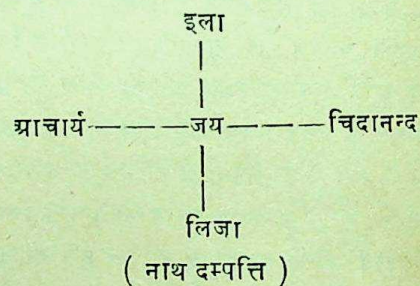 इला
आचार्य — — — — जय — — — — चिदानन्द
लिजा
( नाथ दम्पत्ति )